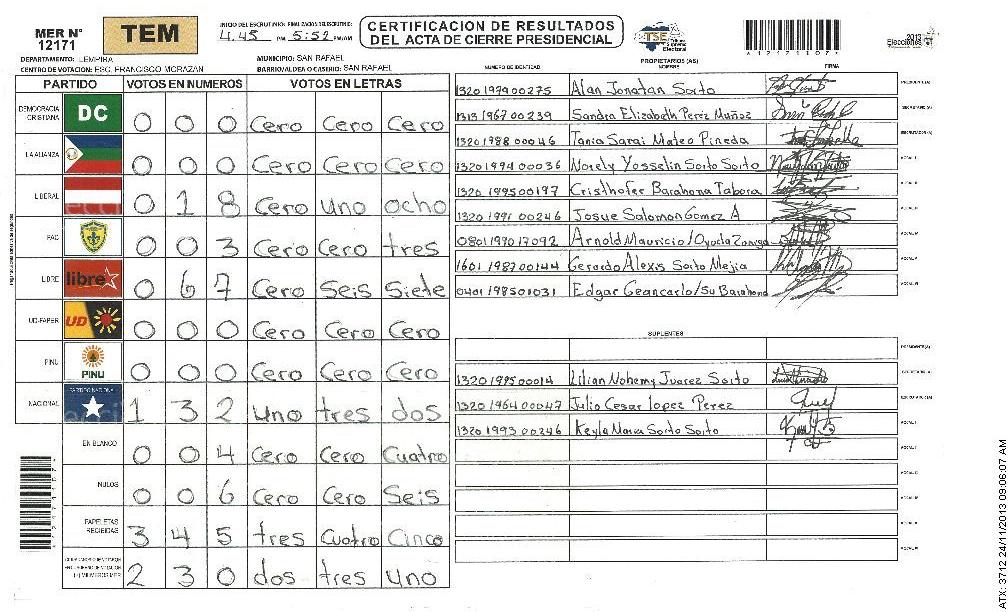 MER N° 12171
TEM
INICIO DEL ESCRUTINIO: FINALIZACION DEL ESCRUTINIO:
4:45 PM 5:52 PM/AM
CERTIFICACION DE RESULTADOS
DEL ACTA DE CIERRE PRESIDENCIAL
TSE
Tribunal Supremo Electoral
2013
Elecciones
DEPARTAMENTO: LEMPIRA
MUNICIPIO: SAN RAFAEL
CENTRO DE VOTACION: ESC. FRANCISCO MORAZAN
BARRIO/ALDEA O CASERIO: SAN RAFAEL
PARTIDO VOTOS EN NUMEROS VOTOS EN LETRAS
DEMOCRACIA CRISTIANA DC 0 0 0 Cero Cero Cero
LA ALIANZA 0 0 0 Cero Cero Cero
LIBERAL 0 1 8 Cero uno ocho
PAC 0 0 3 Cero Cero tres
LIBRE libre 0 6 7 Cero Seis Siete
UD-FAPER UD 0 0 0 Cero Cero Cero
PINU PINU 0 0 0 Cero Cero Cero
NACIONAL PARTIDO NACIONAL 1 3 2 uno tres dos
EN BLANCO 0 0 4 Cero Cero Cuatro
NULOS 0 0 6 Cero Cero Seis
PAPELETAS RECIBIDAS 3 4 5 tres Cuatro Cinco
2 3 0 dos tres uno
PROPIETARIOS (AS)
NUMERO DE IDENTIDAD NOMBRE FIRMA
1320197900275 Alan Jonatan Sorto PRESIDENTE (A)
1313196700239 Sandra Elizabeth Perez Muñoz SECRETARIO (A)
1320198800046 Tania Sarai Mateo Pineda ESCRUTADOR (A)
1320199400036 Norely Yosselin Sorto Sorto VOCAL I
1320199500197 Cristhofer Barahona Tabora VOCAL II
1320199100246 Josue Salomon Gomez A VOCAL III
0801199017092 Arnold Mauricio/Oyuela Zuniga VOCAL IV
1601198700144 Gerardo Alexis Sorto Mejia VOCAL V
0401198501031 Edgar Geancarlo/Su Barahona VOCAL VI
SUPLENTES
PRESIDENTE (A)
1320199500014 Lilian Nohemy Juarez Sorto SECRETARIO (A)
1320196400047 Julio Cesar lopez Perez ESCRUTADOR (A)
1320199300246 Keyla Maria Sorto Sorto VOCAL I
VOCAL II
VOCAL III
VOCAL IV
VOCAL V
VOCAL VI
ATX: 3712 24/11/2013 09:06:07 AM